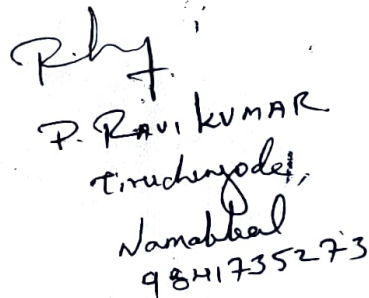 P. RAVI KUMAR
Tiruchengode,
Namakkal
9841735273